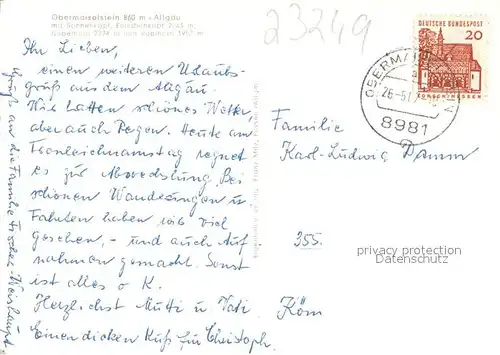 Obermaiselstein 860 m - Allgäu
23249
DEUTSCHE BUNDESPOST
20
8981
Ihr Lieben,
einen weiteren Urlaubs-
gruß aus dem Allgäu.
Wir hatten schönes Wetter,
aber auch Regen. Heute am
Fronleichnamstag regnet
es zur Abwechslung. Bei
schönen Wanderungen u.
Fahrten haben wir viel
gesehen, - und auch Auf
nahmen gemacht. Sonst
ist alles o K.
Herzlichst Mutti u Vati.
Einen dicken Kuß für Christoph.
Gruß an die Familie Fischer-Weishaupt
Familie
Karl-Ludwig Damm
355.
privacy protection
Datenschutz
Köln